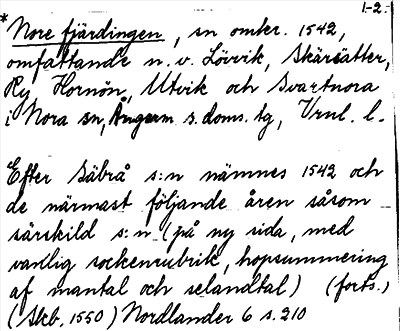 1-2.
*Nore fjärdingen, sn omkr. 1542,
omfattande n. v. Lövvik, Skärsätter,
Ry Hornön, Utvik och Svartnora
i Nora sn, Ångerm. s. doms. tg, Vrnl. l.
Efter Säbrå s:n nämnes 1542 och
de närmast följande åren såsom
särskild s:n (på ny sida, med
vanlig sockenrubrik, hopsummering
af mantal och selandtal) (forts.)
(Skb. 1550) Nordlander 6 s. 210